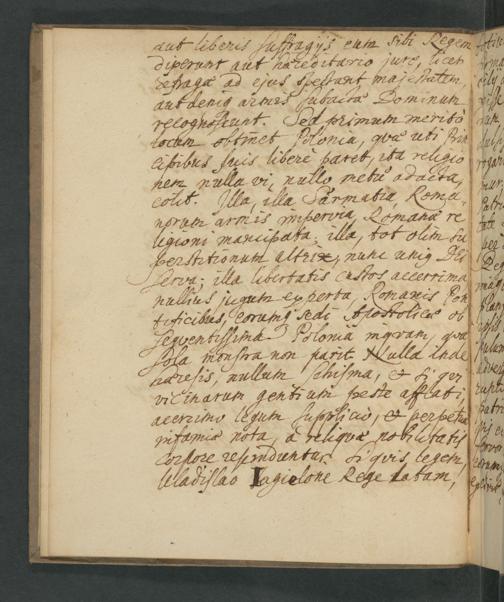 aut liberis suffragijs eum sibi Regem
diperunt aut hæreditario jure, licet
refraga ad ejus spectant majestatem,
aut deniq armis subacta Dominum
recognoscunt. Sed primum meritò
locum obtinet Polonia, quæ uti Prin
cipibus suis liberè paret, ita religio
nem nulla vi, nullo metu adacta,
colit. Illa, illa Sarmatia, Roma-
norum armis impervia, Romanæ re
ligioni mancipata; illa, tot olim su
perstitionum altrix, nunc uniq Dei
serva; illa libertatis custos acerrima
nullius jugum experta Romanis Pon
tificibus, eorumq sedi Apostolicæ ob
sequentissima. Polonia inquam, quæ
sola monstra non parit. Nulla inde
hæresis, nullum schisma, et si qui
vicinarum gentium peste afflati,
acerrimo legum supplicio, et perpetua
infamiæ nota, à reliquæ nobilitatis
corpore rescinduntur. Si quis legem,
Uladislao Jagielone Rege latam,